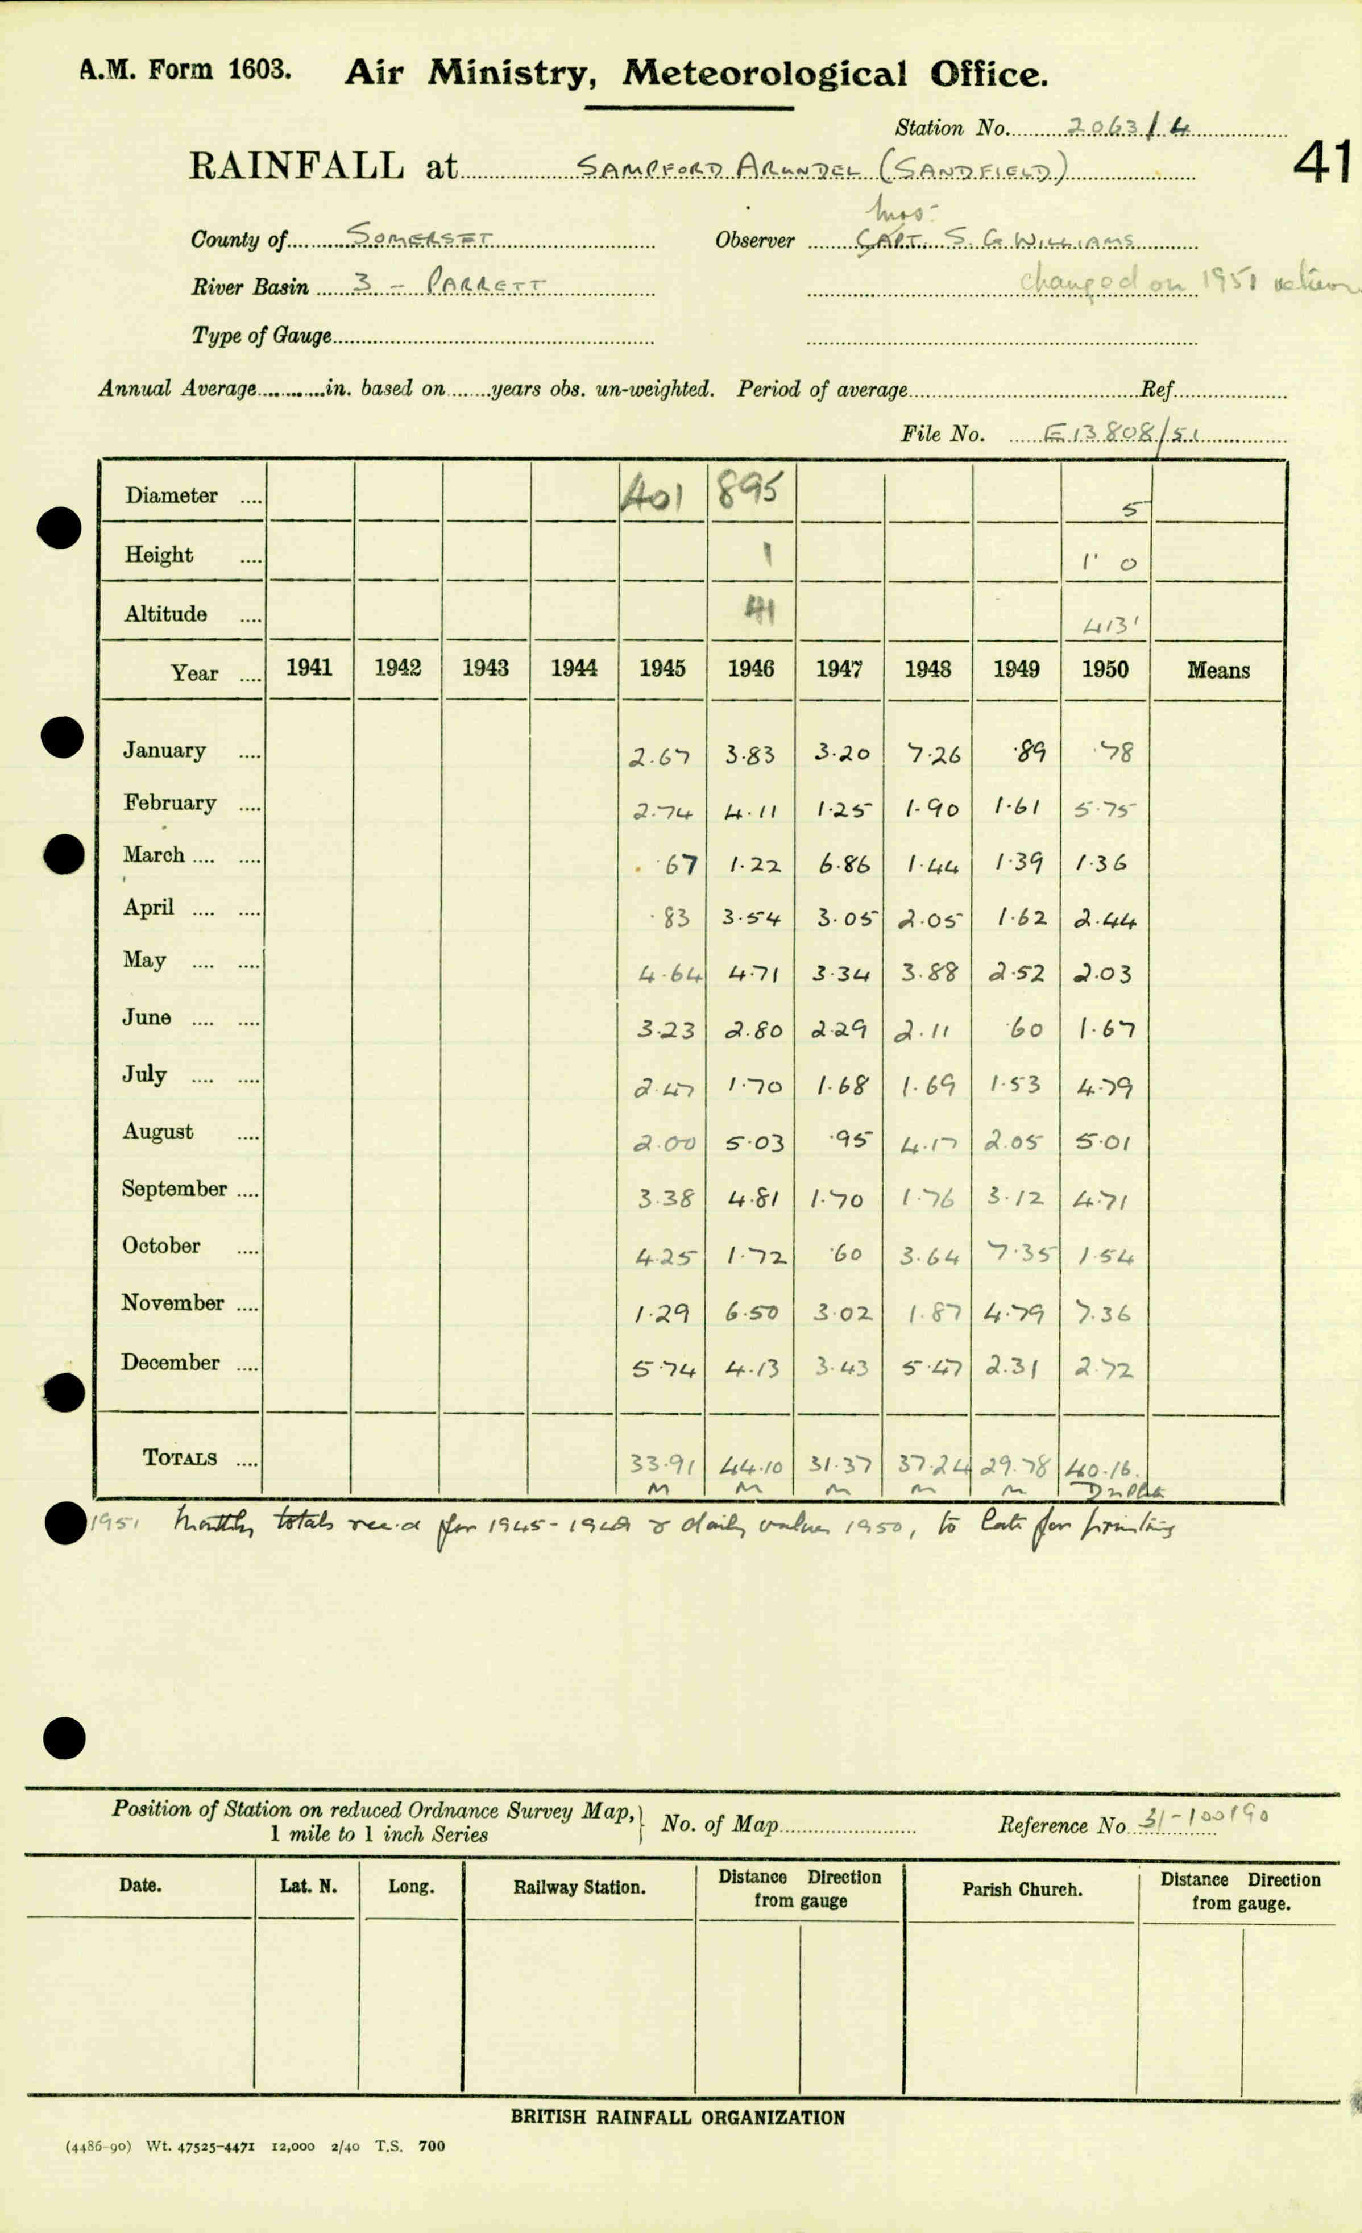 A.M. Form 1603. Air Ministry, Meteorological Office.
Station No. 2063/4
41
RAINFALL at SAMPFORD ARUNDEL (SANDFIELD)
Mrs.
County of SOMERSET Observer CAPT. S. G WILLIAMS
River Basin 3 - PARRETT changed on 1951 return
Type of Gauge
Annual Average in. based on years obs. un-weighted. Period of average Ref.
File No. E13808/51
Diameter .... 401 895 5
Height .... 1 1' 0
Altitude .... 41 413'
Year .... 1941 1942 1943 1944 1945 1946 1947 1948 1949 1950 Means
January .... 2.67 3.83 3.20 7.26 .89 .78
February .... 2.74 4.11 1.25 1.90 1.61 5.75
March .... .... .67 1.22 6.86 1.44 1.39 1.36
April .... .... .83 3.54 3.05 2.05 1.62 2.44
May .... .... 4.64 4.71 3.34 3.88 2.52 2.03
June .... .... 3.23 2.80 2.29 2.11 .60 1.67
July .... .... 2.47 1.70 1.68 1.69 1.53 4.79
August .... 2.00 5.03 .95 4.17 2.05 5.01
September .... 3.38 4.81 1.70 1.76 3.12 4.71
October .... 4.25 1.72 .60 3.64 7.35 1.54
November .... 1.29 6.50 3.02 1.87 4.79 7.36
December .... 5.74 4.13 3.43 5.47 2.31 2.72
TOTALS .... 33.91 44.10 31.37 37.24 29.78 40.16
M M M M M
1951 Monthly totals rec.d for 1945-1949 & daily values 1950, to late for printing
Position of Station on reduced Ordnance Survey Map, } No. of Map Reference No. 31-100190
1 mile to 1 inch Series
Date. Lat. N. Long. Railway Station. Distance Direction from gauge Parish Church. Distance Direction from gauge.
BRITISH RAINFALL ORGANIZATION
(4486-90) Wt. 47525-4471 12,000 2/40 T.S. 700